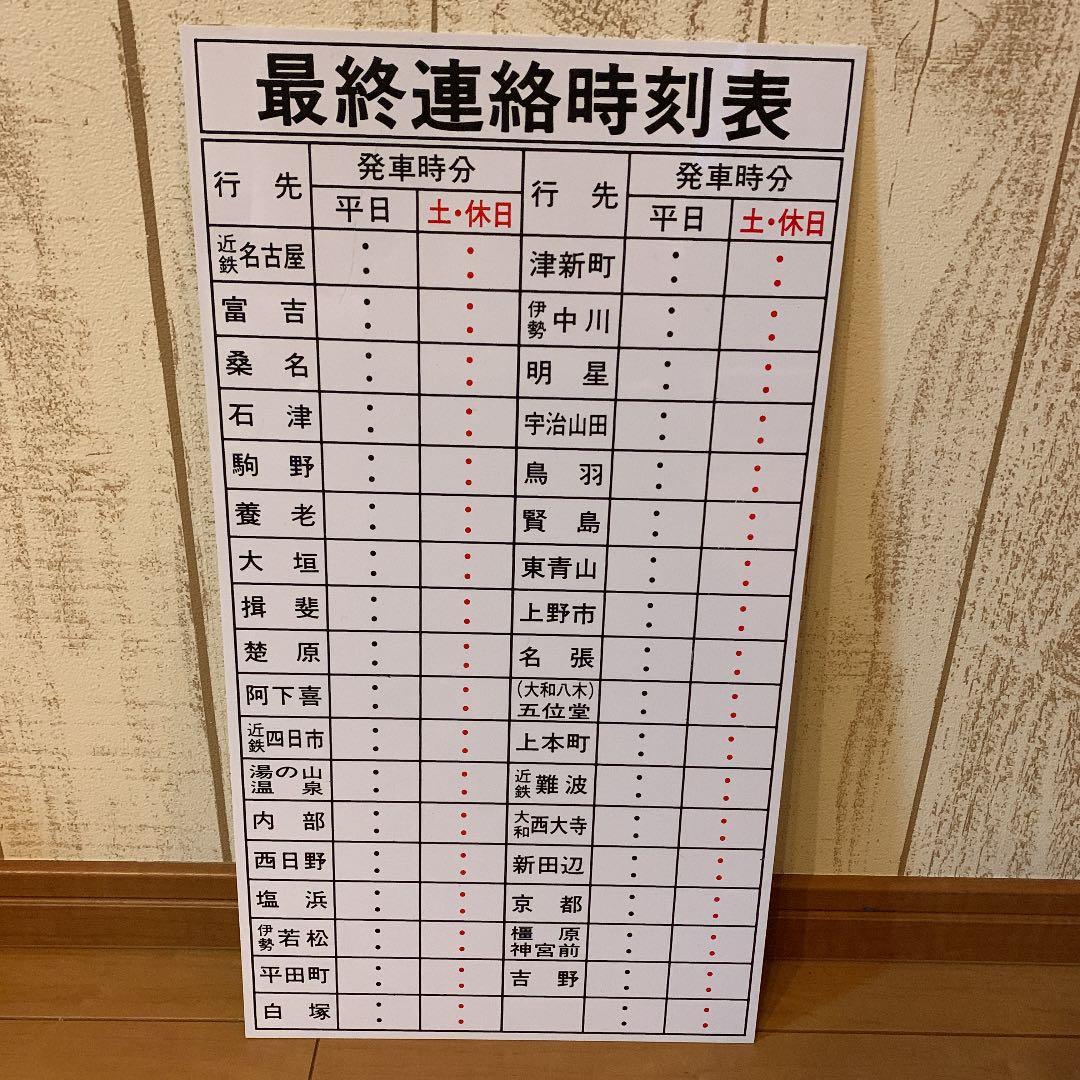 最終連絡時刻表
行先 発車時分 行先 発車時分
平日 土・休日 平日 土・休日
近鉄名古屋 : : 津新町 : :
富吉 : : 伊勢中川 : :
桑名 : : 明星 : :
石津 : : 宇治山田 : :
駒野 : : 鳥羽 : :
養老 : : 賢島 : :
大垣 : : 東青山 : :
揖斐 : : 上野市 : :
楚原 : : 名張 : :
阿下喜 : : (大和八木)
五位堂 : :
近鉄四日市 : : 上本町 : :
湯の山
温泉 : : 近鉄難波 : :
内部 : : 大和西大寺 : :
西日野 : : 新田辺 : :
塩浜 : : 京都 : :
伊勢若松 : : 橿原
神宮前 : :
平田町 : : 吉野 : :
白塚 : : : :